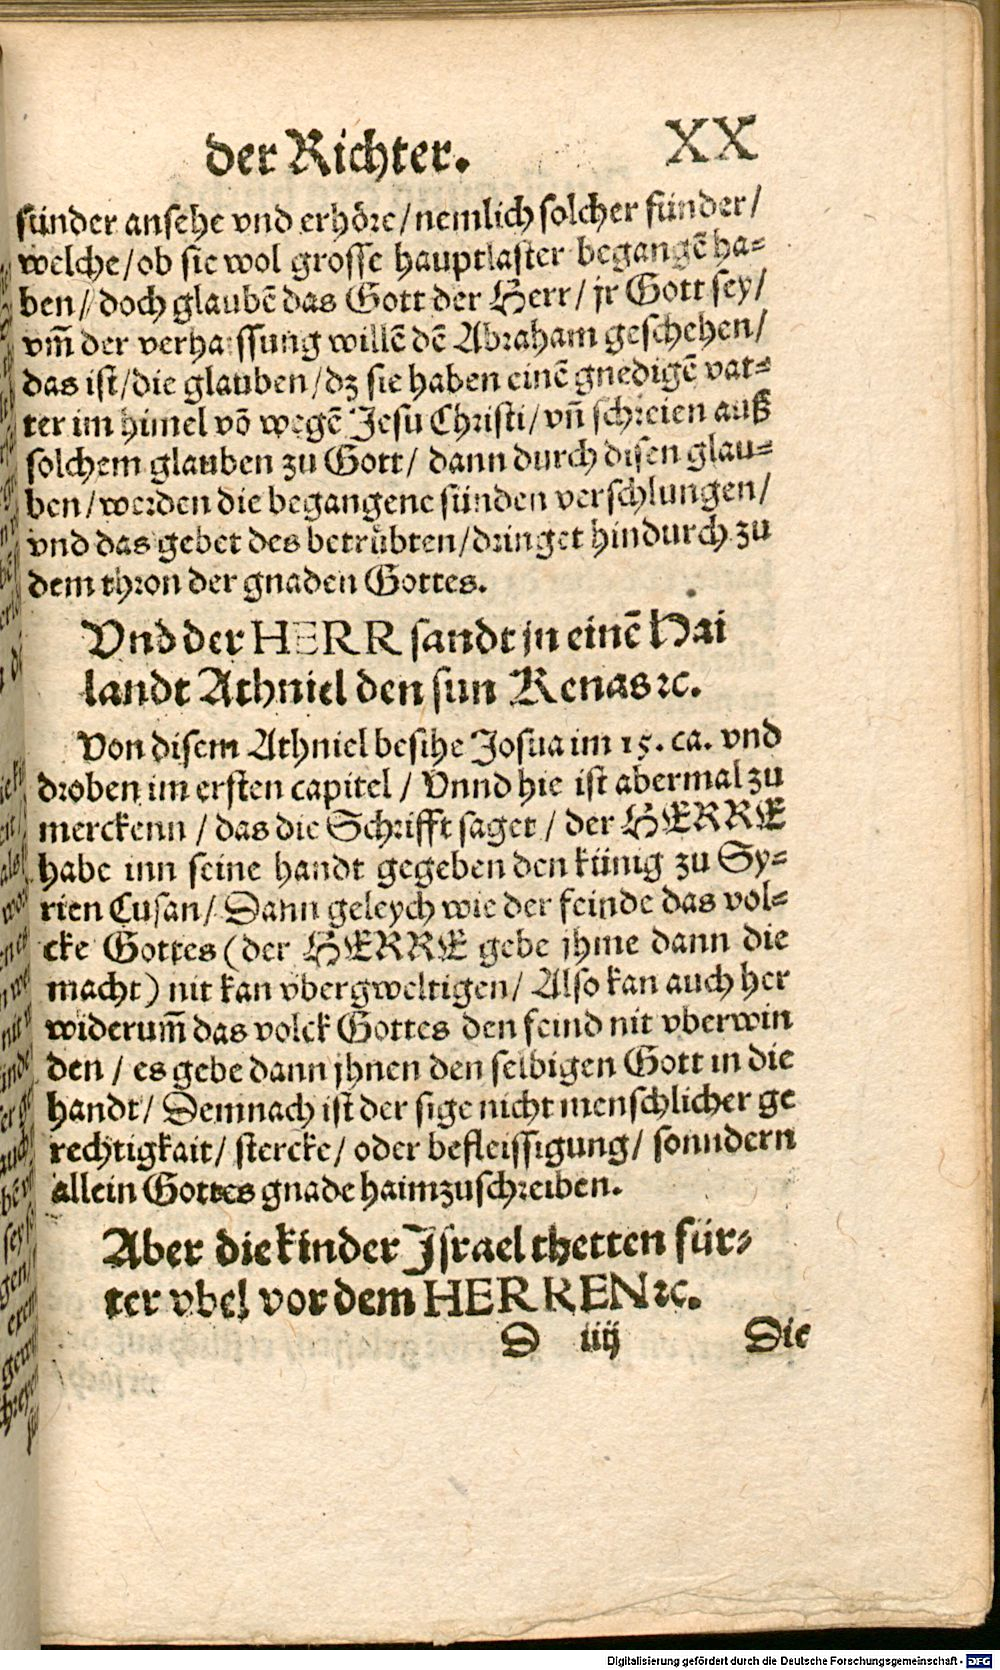 der Richter. XX
sünder ansehe vnd erhöre/ nemlich solcher sünder/
welche/ ob sie wol grosse hauptlaster begangē ha-
ben/ doch glaubē das Gott der Herr/ jr Gott sey/
vm̄ der verhaissung willē dē Abraham geschehen/
das ist/ die glauben/ dz sie haben einē gnedigē vat-
ter im himel vō wegē Jesu Christi/ vn̄ schreien auß
solchem glauben zu Gott/ dann durch disen glau-
ben/ werden die begangene sünden verschlungen/
vnd das gebet des betrübten/ dringet hindurch zu
dem thron der gnaden Gottes.
Vnd der HERR sandt jn einē Hai
landt Athniel den sun Kenas ꝛc.
Von disem Athniel besihe Josua im 15. ca. vnd
droben im ersten capitel/ Vnnd hie ist abermal zu
merckenn/ das die Schrifft saget/ der HERRE
habe inn seine handt gegeben den künig zu Sy-
rien Cusan/ Dann geleych wie der feinde das vol-
cke Gottes (der HERRE gebe jhme dann die
macht) nit kan vbergweltigen/ Also kan auch her
widerum̄ das volck Gottes den feind nit vberwin
den/ es gebe dann jhnen den selbigen Gott in die
handt/ Demnach ist der sige nicht menschlicher ge
rechtigkait/ stercke/ oder befleissigung/ sonndern
allein Gottes gnade haimzuschreiben.
Aber die kinder Jsrael thetten für-
ter vbel vor dem HERREN ꝛc.
D iiij Die
Digitalisierung gefördert durch die Deutsche Forschungsgemeinschaft - DFG